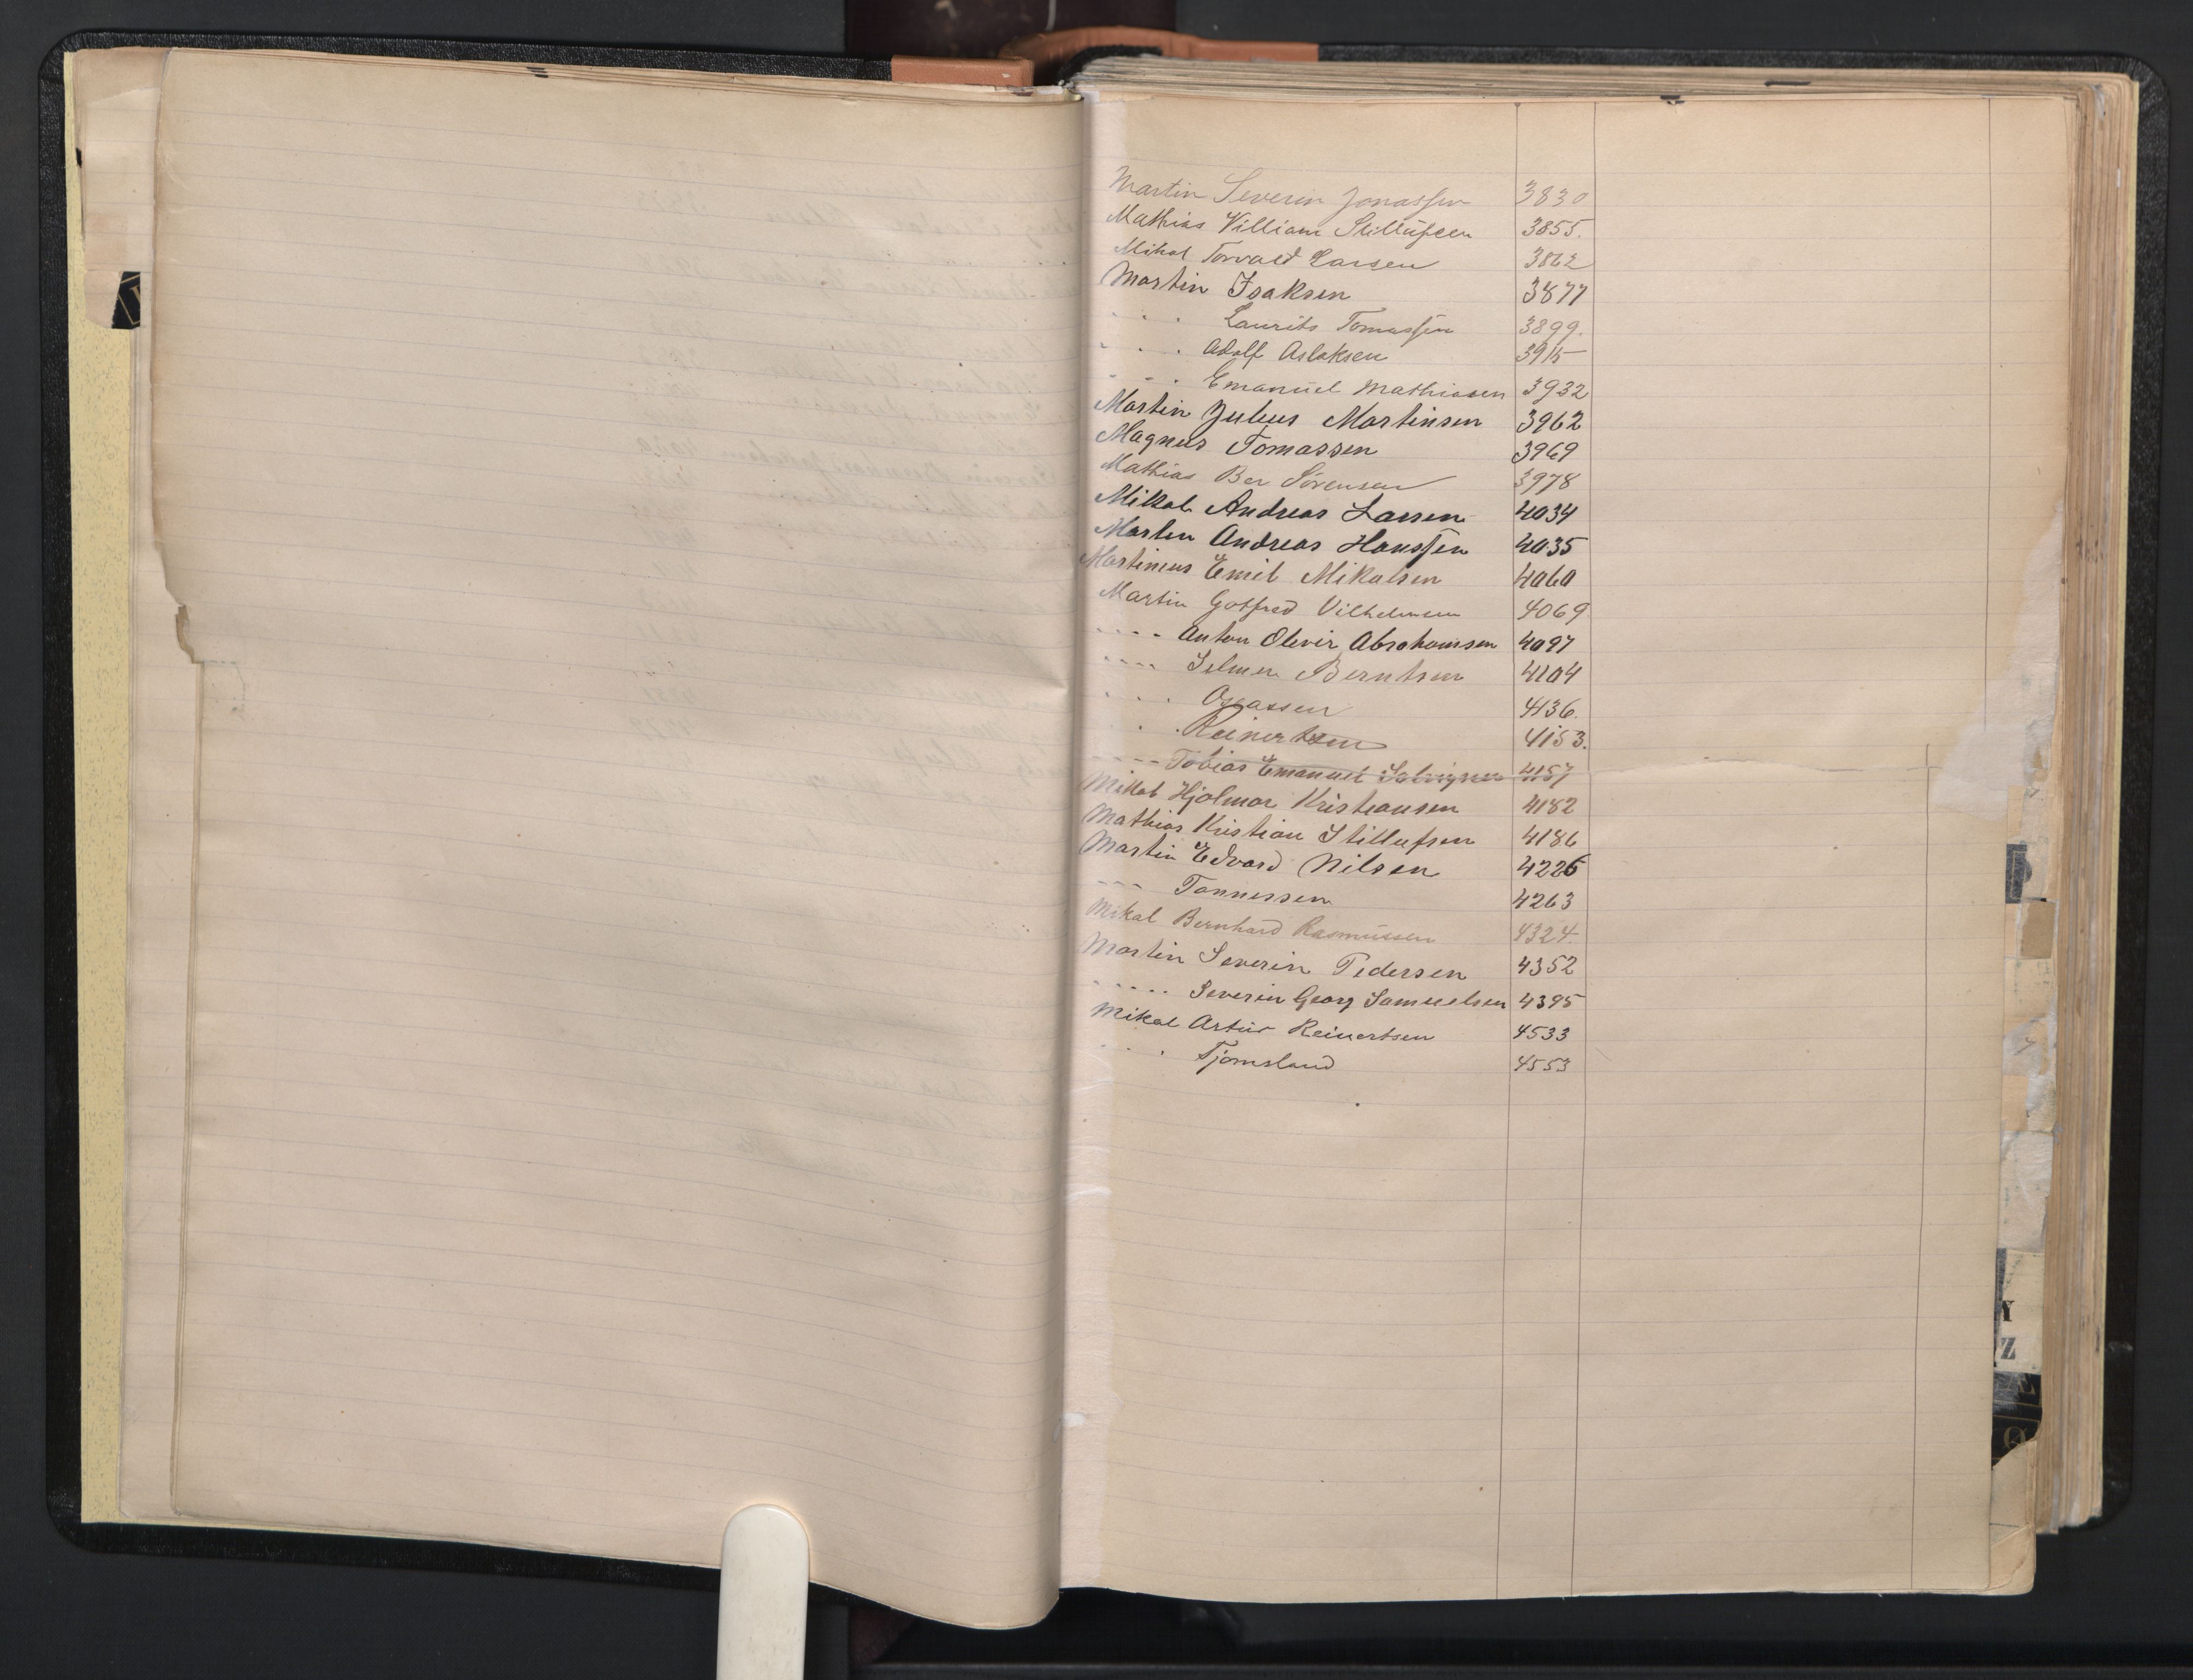 Martin Severin Jonassen 3830
Mathias Villiam Stillufsen 3855.
Mikal Torvald Larsen 3862
Martin Isaksen 3877
- - - Laurits Tomassen 3899.
- - - Adolf Aslaksen 3915
- - - Emanuel Mathiasen 3932
Martin Julius Martinsen 3962
Magnus Tomassen 3969
Mathias Ber Sørensen 3978
Mikal Andreas Larsen 4034
Martin Andreas Hanssen 4035
Martinius Emil Mikalsen 4060
Martin Gotfred Vilhelmsen 4069
- - - - Anton Olevir Abrahamsen 4097
- - - - Selmer Berntsen 4104
- - - Osuassen 4136.
- - Reinertsen 4153.
- - - - Tobias Emanuel 4157
Mikal Hjalmar Kristiansen 4182
Mathias Kristian Stillufsen 4186
Martin Edvard Nilsen 4226
- - - Tønnessen 4263
Mikal Bernhard Rasmussen 4324.
Martin Severin Pedersen 4352
- - - - - Severin Georg Samuelsen 4395
Mikal Artur Reinertsen 4533
- - - Tjomsland 4553
Y
Z
Ø